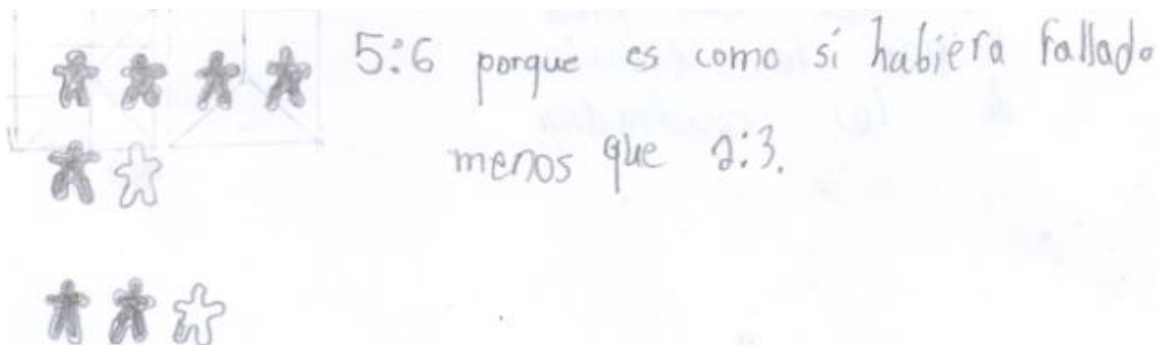 5:6 porque es como si habiera fallado
menos que 2:3.